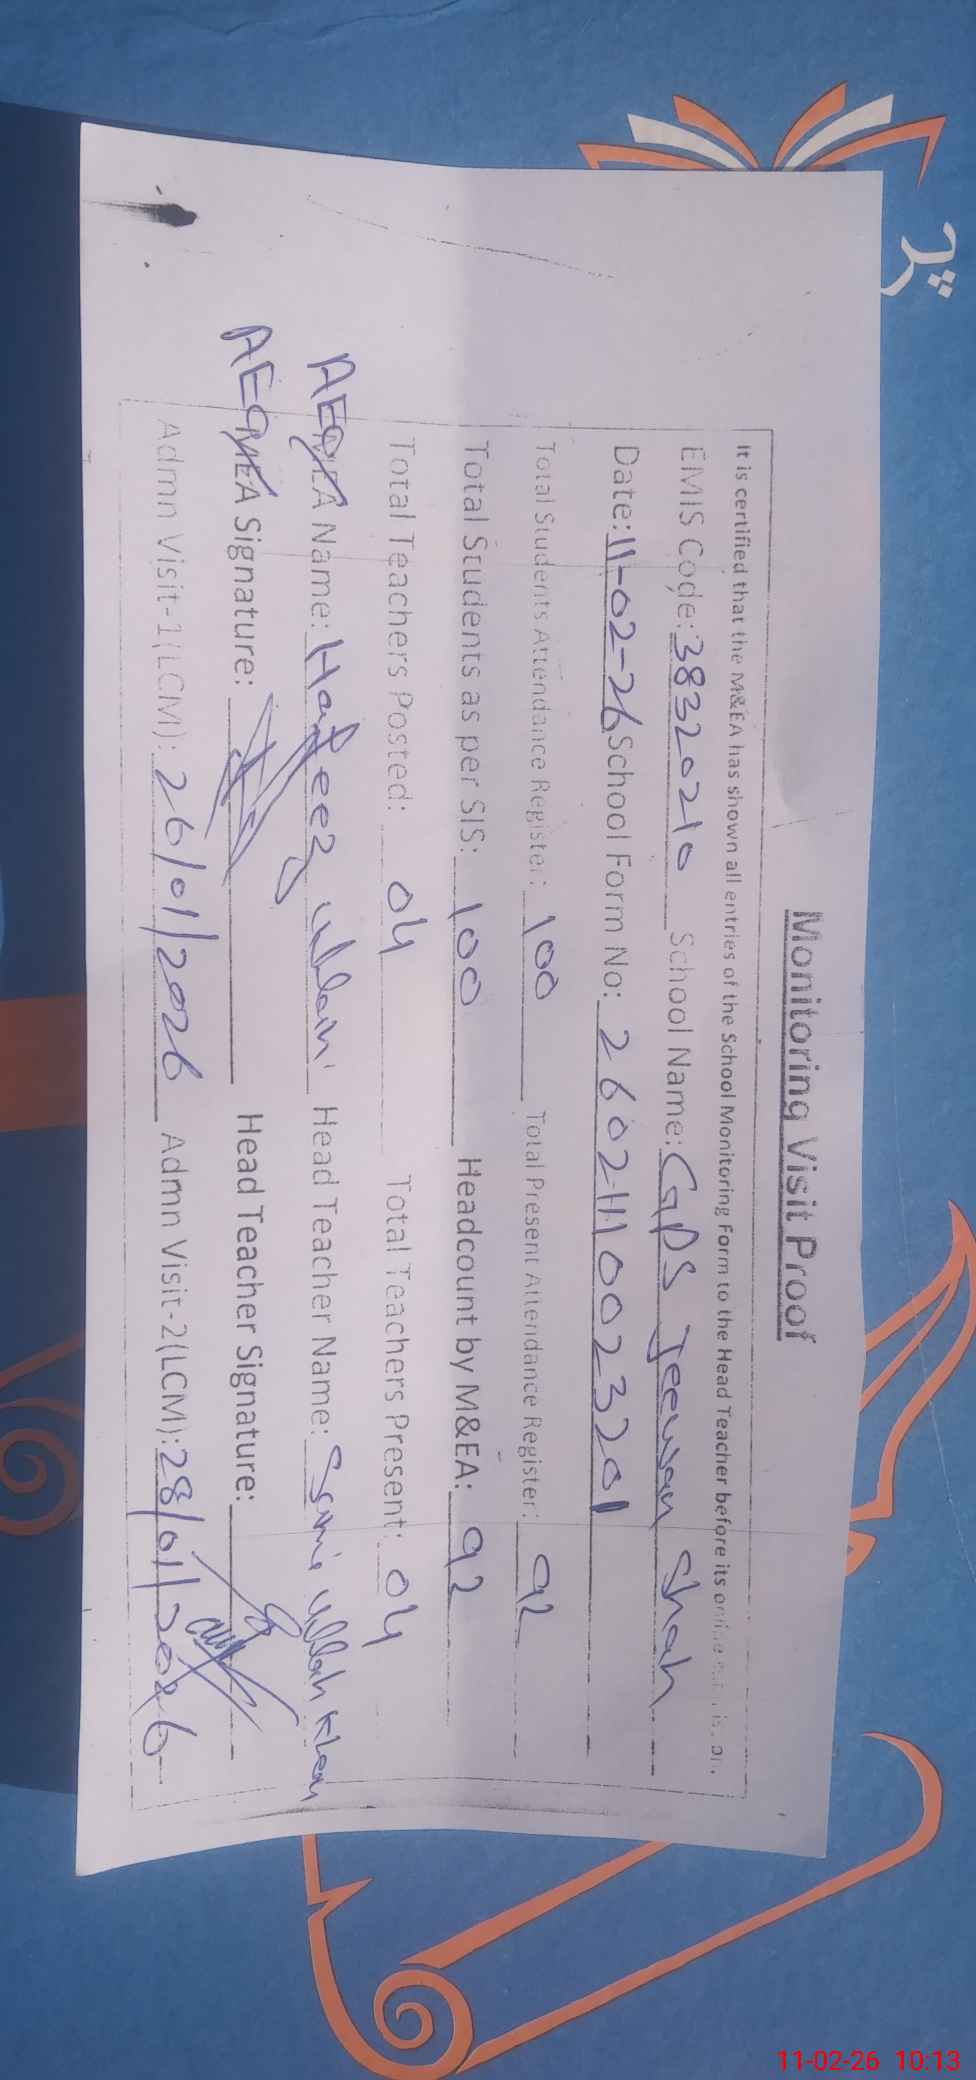 Monitoring Visit Proof
It is certified that the M&EA has shown all entries of the School Monitoring Form to the Head Teacher before its
EMIS Code: 38320210 School Name: GPS Jeewan Shah
Date: 11-02-26 School Form No: 26021110023201
Total Students Attendance Register: 100 Total Present Attendance Register: 92
Total Students as per SIS: 100 Headcount by M&EA: 92
Total Teachers Posted: 04 Total Teachers Present: 04
AEO Name: Hafeez ullah Head Teacher Name: Sami ullah Khan
AEO Signature: Head Teacher Signature:
Admn Visit-1(LCM): 26/01/2026 Admn Visit-2(LCM): 28/01/2026
11-02-26 10:13